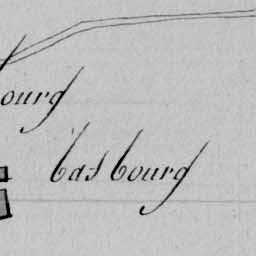 ourg
bas bourg